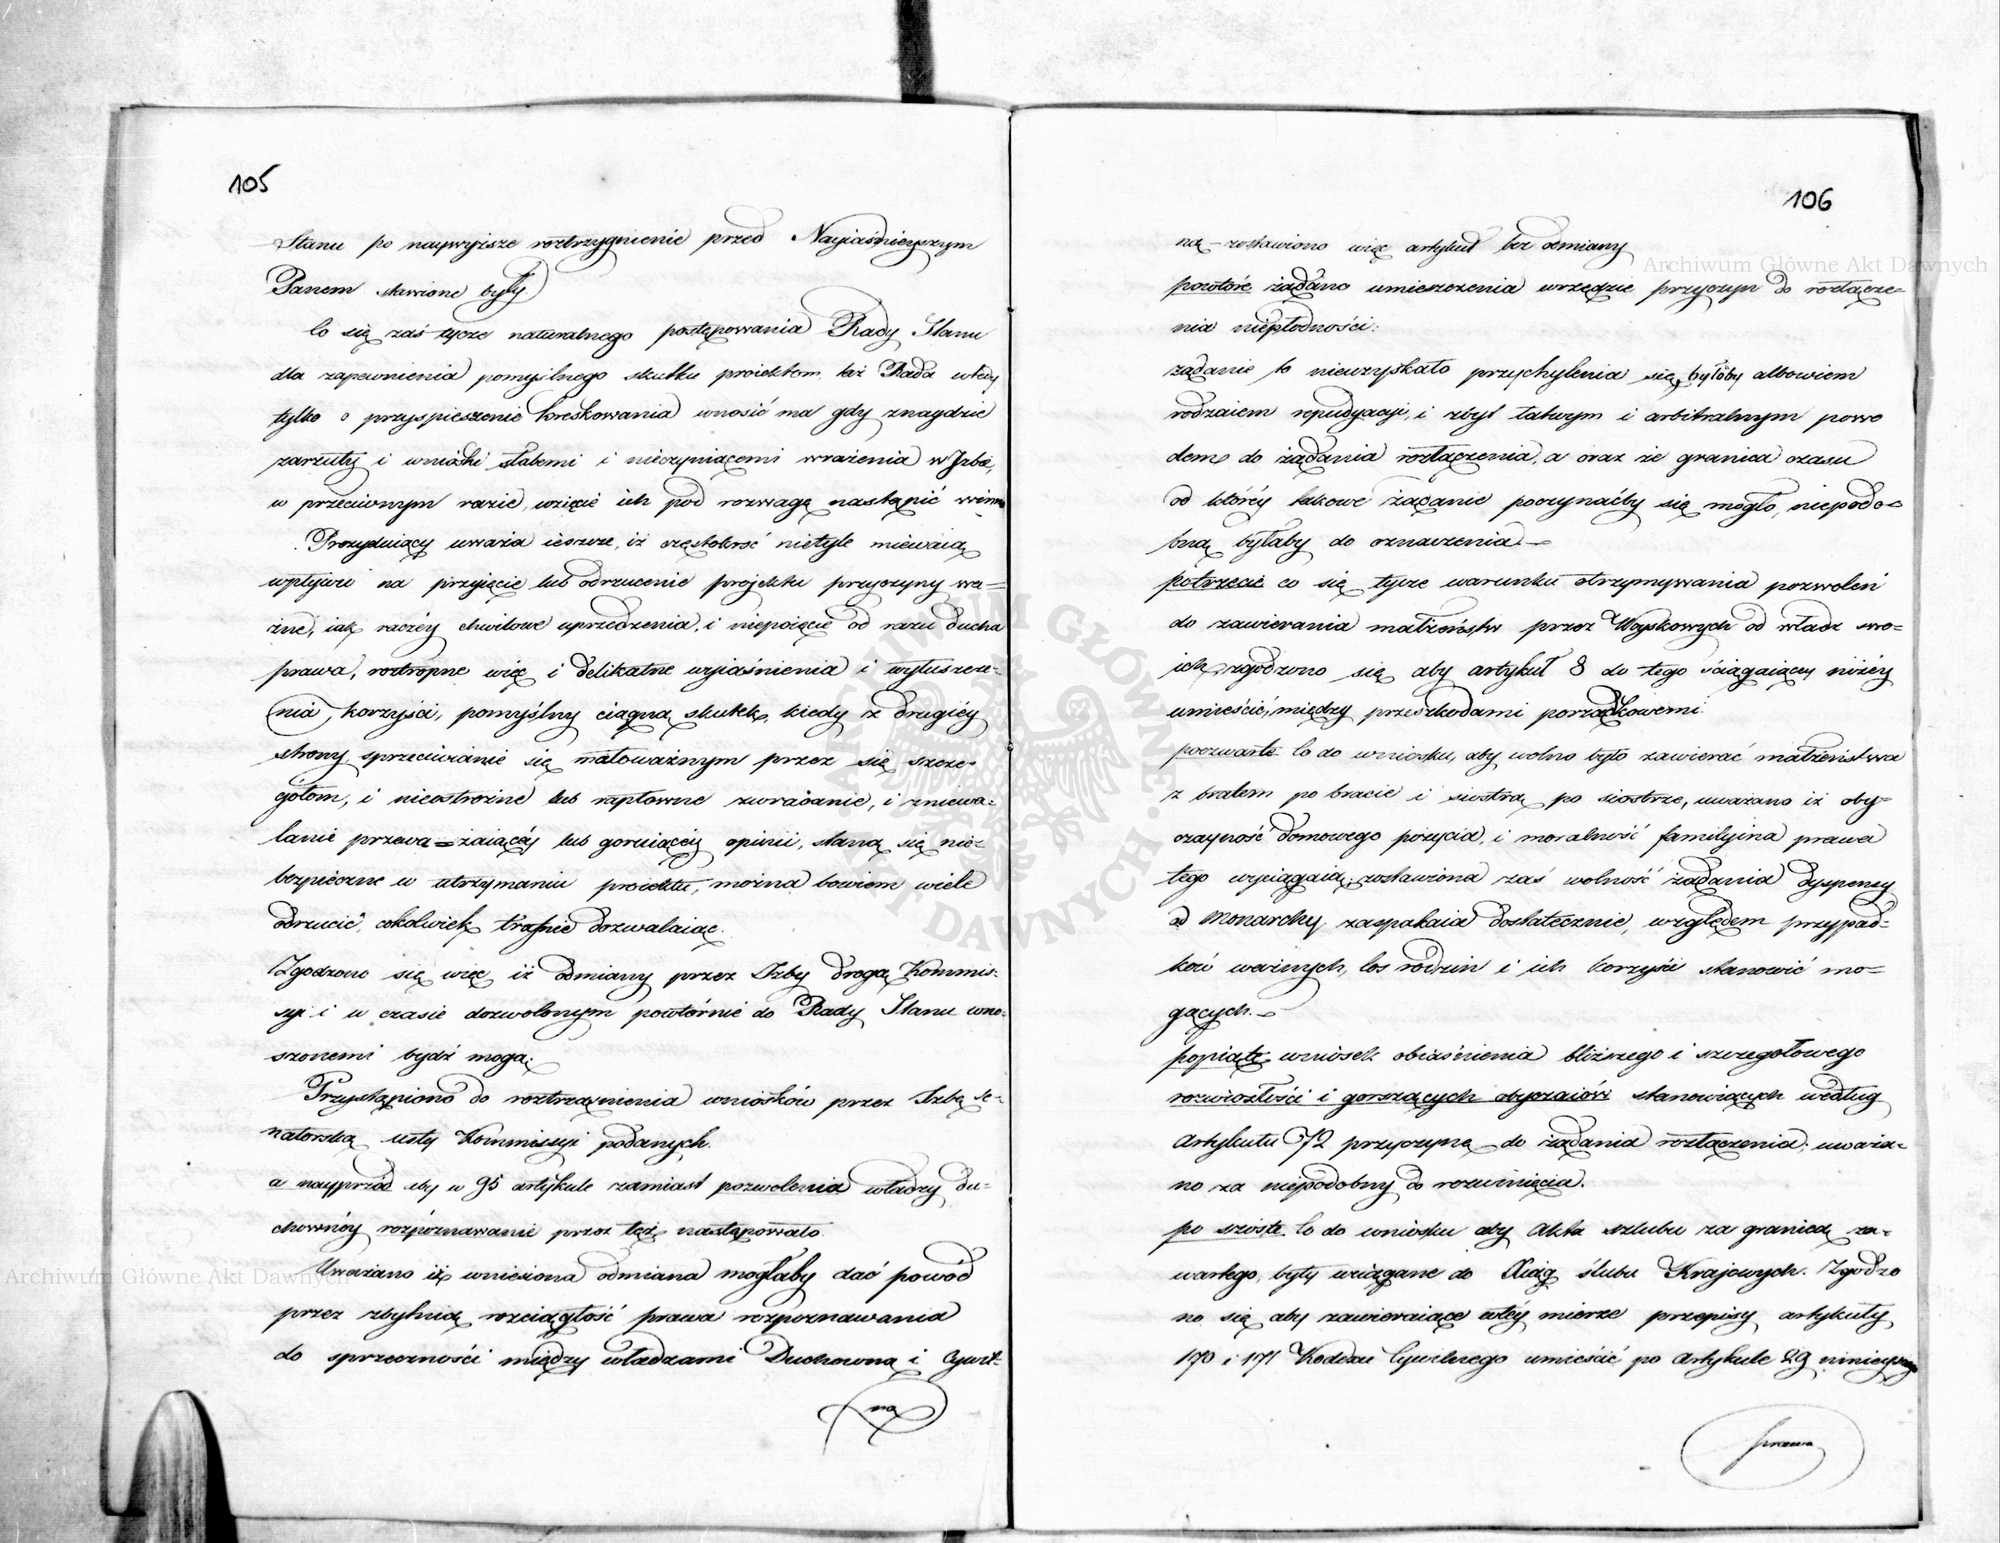 105
Stanu po naywyższe roztrzygnienie przed Nayiaśnieyszym
Panem stawione były.
Co się zaś tycze naturalnego postępowania Rady Stanu
dla zapewnienia pomyślnego skutku proiektom, też Rada wtedy
tylko o przyspieszenie kreskowania wnosić ma gdy znaydzie
zarzuty i wnioski słabemi i nieczyniącemi wrażenia w Izbie,
w przeciwnym razie, wzięcie ich pod rozwagę nastąpić winno
Prezyduiący uważa ieszcze, iż częstokroć nietyle miewaią
wpływu na przyięcie lub odrzucenie projektu przyczyny wa=
żne, iak raczéy chwilowe uprzedzenia, i niepoięcie od razu ducha
prawa, roztropne więc i delikatne wyiaśnienia i wyłuszcze=
nia, korzyści, pomyślny ciągną skutek, kiedy z drugiéy
strony sprzeciwianie się małoważnym przez się szcze=
gółom, i nieostrożne lub raptowne zwracanie, i zniewa=
lanie przewa=żaiącéy lub goruiącéy opinii, staną się nie=
bezpieczne w utrzymaniu proiektu, można bowiem wiele
odrzucić, cokolwiek trafnie dozwalaiąc.
Zgodzono się więc iż odmiany przez Izby drogą Kommis=
syi i w czasie dozwolonym powtórnie do Rady Stanu wno=
szonemi bydź mogą.
Przystąpiono do roztrząśnienia wniosków przez Izbę Se=
natorską usty Kommissyi podanych.
a nayprzód aby w 95 artykule zamiast pozwolenia władzy du=
chownéy rozpoznawanie przez też następowało.
Uważano iż wniesiona odmiana mogłaby dać powód
przez zbytnią rozciągłość prawa rozpoznawania
do sprzeczności między władzami Duchowną i Cywil=
ną
106
ną – zostawiono więc artykuł bez odmiany
powtóre żądano umieszczenia wrzędzie przyczyn do rozłącze=
nia niepłodności:
żądanie to nieuzyskało przychylenia się, byłoby albowiem
rodzaiem repudyacyi, i zbyt łatwym i arbitralnym powo
dem do żądania rozłączenia, a oraz że granica czasu
od któréy takowe żądanie poczynaćby się mogło, niepodo=
bną byłaby do oznaczenia.
potrzecie co się tycze warunku otrzymywania pozwoleń
do zawierania małżeństw przez Woyskowych od władz swo=
ich, zgodzono się aby artykuł 8 do tego ściągaiący niżéy
umieścić, między przeszkodami porządkowemi.
poczwarte Co do wniosku, aby wolno było zawierać małżeństwa
z bratem po bracie i siostrą po siostrze, uważano iż oby=
czayność domowego pożycia, i moralność familyina prawa
tego wyciągaią; zostawiona zaś wolność żądania dyspensy
od Monarchy zaspakaia dostatecznie, względem przypad=
ków ważnych, los rodzin i ich korzyści stanowić mo=
gących.
popiąte wniosek obiaśnienia bliższego i szczegołowego
rozwiozłości i gorszących obyczaiów stanowiących według
Artykułu 72 przyczynę do żądania rozłączenia; uważa=
no za niepodobny do rozwinięcia.
po szóste Co do wniosku aby Akta szlubu za granicą za=
wartego, były wciągane do Xiąg ślubu Krajowych. Zgodzo
no się aby zawieraiące wtéy mierze przepisy artykuły
170 i 171 Kodexu Cywilnego umieścić po Artykule 29 ninieyszego
prawa
Archiwum Główne Akt Dawnych
Archiwum Główne Akt Dawnych
ARCHIWUM GŁÓWNE AKT DAWNYCH